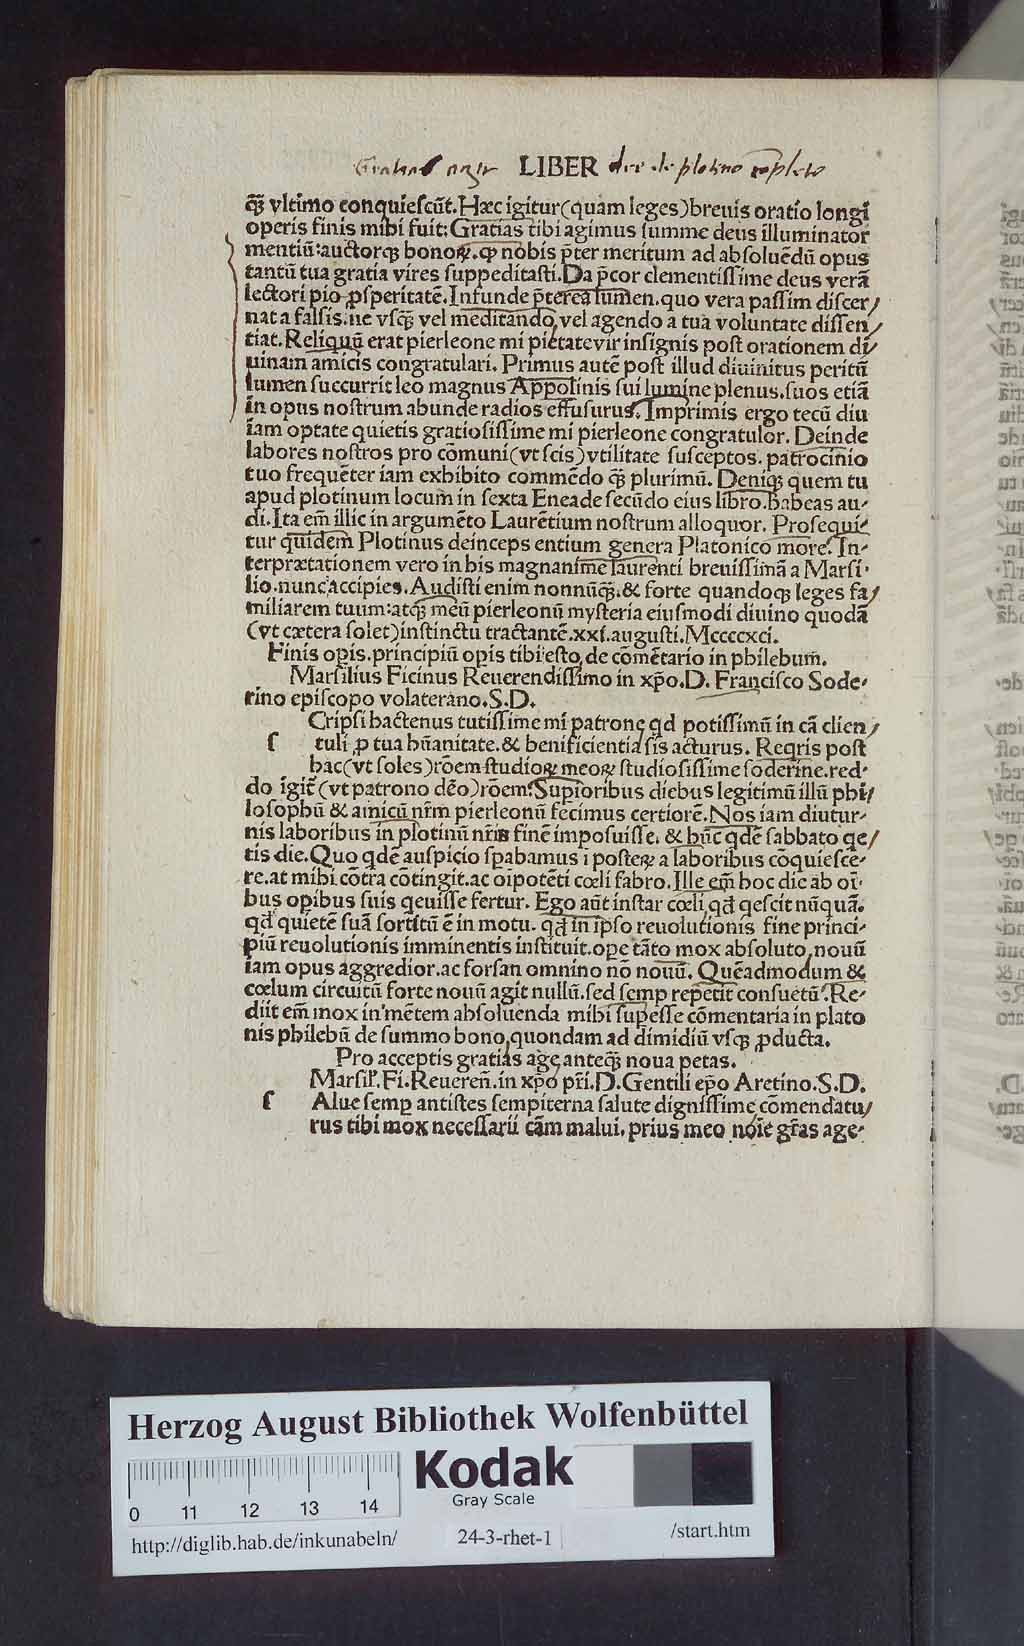 LIBER de plotino completo
q̄ȝ vltimo conquieſcūt. Hæc igitur (quam leges) breuis oratio longi
operis finis mihi fuit: Gratias tibi agimus ſumme deus illuminator
mentiū: auctorqȝ bonoꝝ. ꝙ nobis p̄ter meritum ad abſoluēdū opus
tantū tua gratia vires ſuppeditaſti. Da p̄cor clementiſſime deus verā
lectori pio ꝓſperitatē. Infunde p̄terea lumen. quo vera paſſim diſcer⸗
nat a falſis. ne vſq̄ȝ vel meditando, vel agendo a tua voluntate diſſen⸗
tiat. Reliquū erat pierleone mi pietate vir inſignis poſt orationem di⸗
uinam amicis congratulari. Primus autē poſt illud diuinitus peritū
lumen ſuccurrit leo magnus Appolinis ſui lumine plenus. ſuos etiā
in opus noſtrum abunde radios effuſurus. Imprimis ergo tecū diu
iam optate quietis gratioſiſſime mi pierleone congratulor. Deinde
labores noſtros pro cōmuni (vt ſcis) vtilitate ſuſceptos. patrocinio
tuo frequēter iam exhibito commēdo q̄ȝ plurimū. Deniqȝ quem tu
apud plotinum locum in ſexta Eneade ſecūdo eius libro. habeas au⸗
di. Ita em̄ illic in argumēto Laurētium noſtrum alloquor. Proſequi⸗
tur quidem Plotinus deinceps entium genera Platonico more. In⸗
terprætationem vero in his magnanime laurenti breuiſſimā a Marſi⸗
lio. nunc accipies. Audiſti enim nonnūq̄ȝ. & forte quandoqȝ leges fa⸗
miliarem tuum: atqȝ meū pierleonū myſteria eiuſmodi diuino quodā
(vt cætera ſolet) inſtinctu tractantē. xxi. auguſti. Mccccxci.
Finis opis. principiū opis tibi eſto, de cōmētario in philebum̄.
Marſilius Ficinus Reuerendiſſimo in xp̄o. D. Franciſco Sode⸗
rino epiſcopo volaterano. S. D.
Cripſi hactenus tutiſſime mi patrone qd potiſſimū in cā clien⸗
ſ tuli ꝓ tua hūanitate. & benificientia ſis acturus. Reqris poſt
hac (vt ſoles) rōem ſtudioꝝ meoꝝ ſtudioſiſſime ſoderine. red⸗
do igit̄ (vt patrono dēo) rōem. Supioribus diebus legitimū illū phi⸗
loſophū & amicū nr̄m pierleonū fecimus certiorē. Nos iam diutur⸗
nis laboribus in plotinū nr̄is finē impoſuiſſe. & hūc qdē ſabbato qe⸗
tis die. Quo qdē auſpicio ſpabamus ī poſteꝝ a laboribus cōquieſce⸗
re. at mihi cōtra cōtingit. ac oīpotēti cœli fabro. Ille em̄ hoc die ab oī⸗
bus opibus ſuis qeuiſſe fertur. Ego aūt inſtar cœli, qd qeſcit nūquā.
qd quietē ſuā ſortitū ē in motu. qd in ipſo reuolutionis fine princi⸗
piū reuolutionis imminentis inſtituit. ope tāto mox abſoluto, nouū
iam opus aggredior. ac forſan omnino nō nouū. Quēadmodum &
cœlum circuitū forte nouū agit nullū. ſed ſemp repetit conſuetū. Re⸗
diit em̄ mox in mētem abſoluenda mihi ſupeſſe cōmentaria in plato
nis philebū de ſummo bono, quondam ad dimidiū vſqȝ ꝓducta.
Pro acceptis gratias age, anteq̄ȝ noua petas.
Marſil. Fi. Reuereñ. in xp̄o pr̄i. D. Gentili ep̄o Aretino. S. D.
ſ Alue ſemp antiſtes ſempiterna ſalute digniſſime, cōmendatu⸗
rus tibi mox neceſſarii cām malui, prius meo noīe gr̄as age⸗
Herzog August Bibliothek Wolfenbüttel
0 11 12 13 14
Kodak
Gray Scale
http://diglib.hab.de/inkunabeln/
24-3-rhet-1
/start.htm